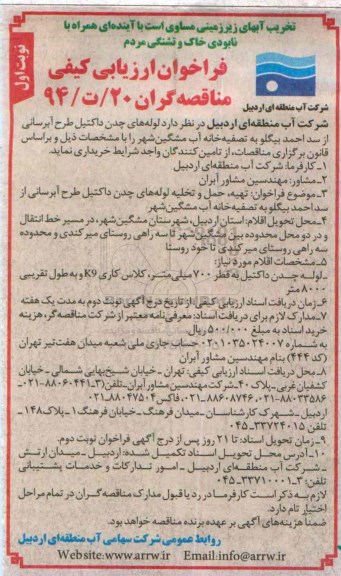 تخریب آبهای زیرزمینی مساوی است با آینده‌ای همراه با
نابودی خاک و تشنگی مردم
نوبت اول
فراخوان ارزیابی کیفی
مناقصه‌گران ۲۰/ت/۹۴
شرکت آب منطقه‌ای اردبیل
شرکت آب منطقه‌ای اردبیل در نظر دارد لوله‌های چدن داکتیل طرح آبرسانی
از سد احمد بیگلو به تصفیه‌خانه آب مشگین‌شهر را با مشخصات ذیل و براساس
قانون برگزاری مناقصات، از تامین کنندگان واجد شرایط خریداری نماید.
۱-کارفرما: شرکت آب منطقه‌ای اردبیل
۲-مشاور: مهندسین مشاور آبران
۳-موضوع فراخوان: تهیه، حمل و تخلیه لوله‌های چدن داکتیل طرح آبرسانی از
سد احمد بیگلو به تصفیه خانه آب مشگین شهر
۴-محل تحویل اقلام: استان اردبیل، شهرستان مشگین‌شهر، در مسیر خط انتقال
و در دو محل محدوده بین مشگین‌شهر تا سه راهی روستای میر کندی و محدوده
سه راهی روستای میر کندی تا خود روستا
۵-مشخصات اقلام مورد نیاز:
-لوله چدن داکتیل به قطر ۷۰۰ میلی‌متر، کلاس کاری K9 و به طول تقریبی
۸۰۰۰ متر
۶-زمان دریافت اسناد ارزیابی کیفی: از تاریخ درج آگهی نوبت دوم به مدت یک هفته
۷-مدارک لازم برای دریافت اسناد: معرفی‌نامه معتبر از شرکت مناقصه‌گر، هزینه
خرید اسناد به مبلغ ۵۰۰/۰۰۰ ریال،
به شماره حساب جاری ملی شعبه میدان هفت تیر تهران
(کد ۴۴۴) بنام مهندسین مشاور آبران
۸-محل دریافت اسناد ارزیابی کیفی: تهران - خیابان شیخ‌بهایی شمالی - خیابان
کشفیان غربی-پلاک ۴۰-شرکت مهندسین مشاور آبران-تلفن ۳-۸۸۰۶۰۴۴۱-۰۲۱
۸۸۰۳۳۵۸۶-۰۲۱، ۸۸۶۰۸۷۴۶-۰۲۱، فاکس ۸۸۰۴۷۵۰۴-۰۲۱
اردبیل - شهرک کارشناسان - میدان فرهنگ - خیابان فرهنگ ۱ - پلاک ۱۴۸ -
تلفن ۳۳۷۲۴۰۱۵-۰۴۵
۹-زمان تحویل اسناد: تا ۲۱ روز پس از درج آگهی فراخوان نوبت دوم.
۱۰-آدرس محل تحویل اسناد تکمیل شده: اردبیل - میدان ارتش
- شرکت آب منطقه‌ای اردبیل - امور تدارکات و خدمات پشتیبانی
تلفن: ۳-۳۳۷۱۰۰۰۱-۰۴۵
لازم به ذکر است کارفرما در رد یا قبول مدارک مناقصه‌گران در تمام مراحل
اختیار تام دارد.
ضمناً هزینه‌های آگهی بر عهده برنده مناقصه خواهد بود.
روابط عمومی شرکت سهامی آب منطقه‌ای اردبیل
Website:www.arrw.ir Email:info@arrw.ir